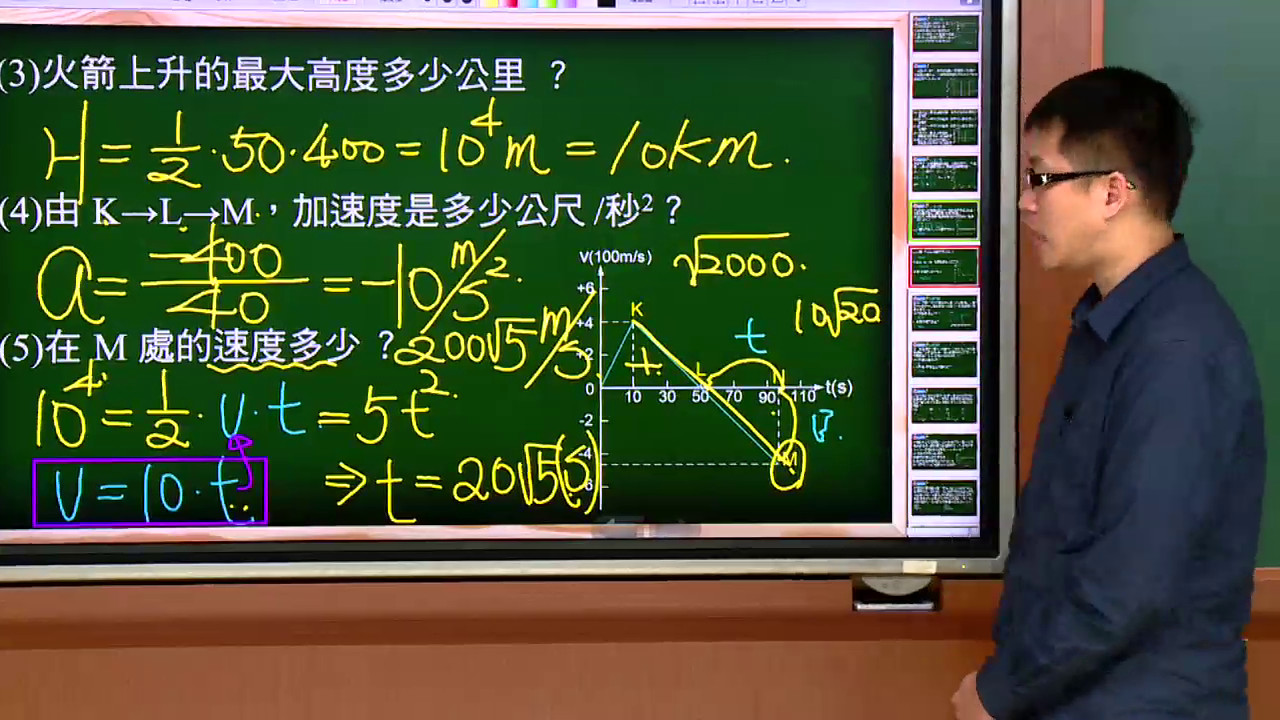 (3)火箭上升的最大高度多少公里 ？
H = 1/2 · 50 · 400 = 10⁴ m = 10km.
(4)由 K→L→M，加速度是多少公尺 /秒² ？
a = -400/40 = -10 m/s².
(5)在 M 處的速度多少 ？ 200√5 m/s.
10⁴ = 1/2 · v · t = 5t².
v = 10 · t
⇒ t = 20√5 (s)
v(100m/s)
√2000.
10√20
+6
+4
+2
0
-2
-4
-6
10 30 50 70 90 110
t(s)
K
L
N
M
H
t
v.